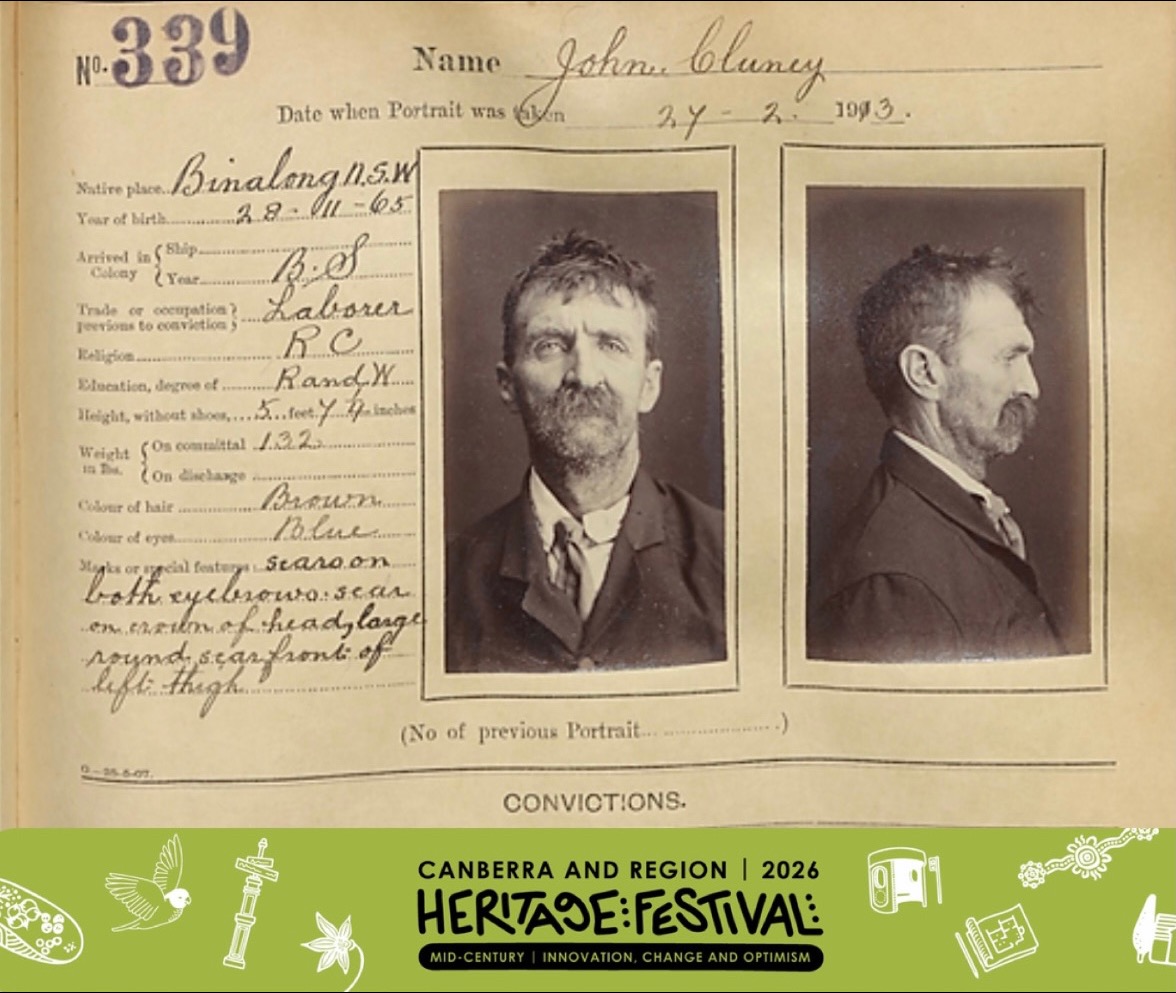 No. 339
Name John Cluney
Date when Portrait was taken 27 - 2. 1913.
Native place Binalong N.S.W
Year of birth 28 - 11 - 65
Arrived in Colony { Ship
{ Year B.S
Trade or occupation previous to conviction } Laborer
Religion R C
Education, degree of R and W
Height, without shoes, 5 feet 7 4 inches
Weight in lbs. { On committal 132
{ On discharge
Colour of hair Brown
Colour of eyes Blue
Marks or special features: scars on
both eyebrows. scar
on crown of head, large
round scar front of
left thigh
(No of previous Portrait )
CONVICTIONS.
CANBERRA AND REGION | 2026
HERITAGE FESTIVAL
MID-CENTURY | INNOVATION, CHANGE AND OPTIMISM